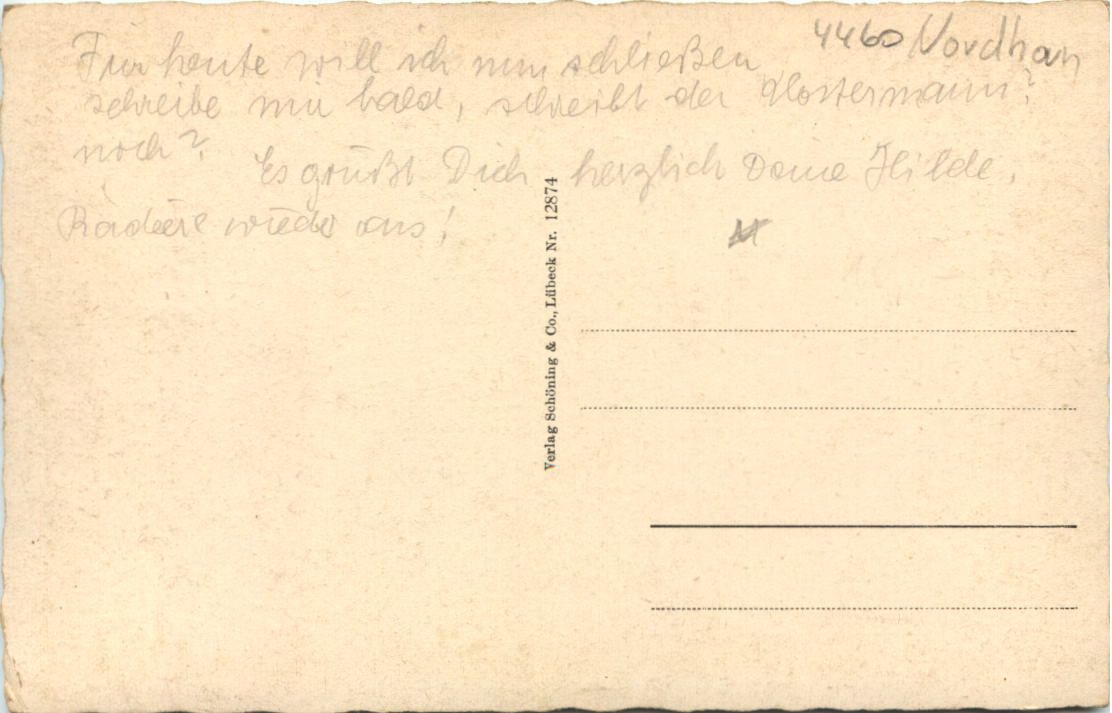 4460 Nordhorn
Für heute will ich nun schließen
schreibe mir bald, schreibt der Klostermann?
noch?
Es grüßt Dich herzlich Deine Hilde.
Radiere wieder aus!
Verlag Schöning & Co., Lübeck Nr. 12874